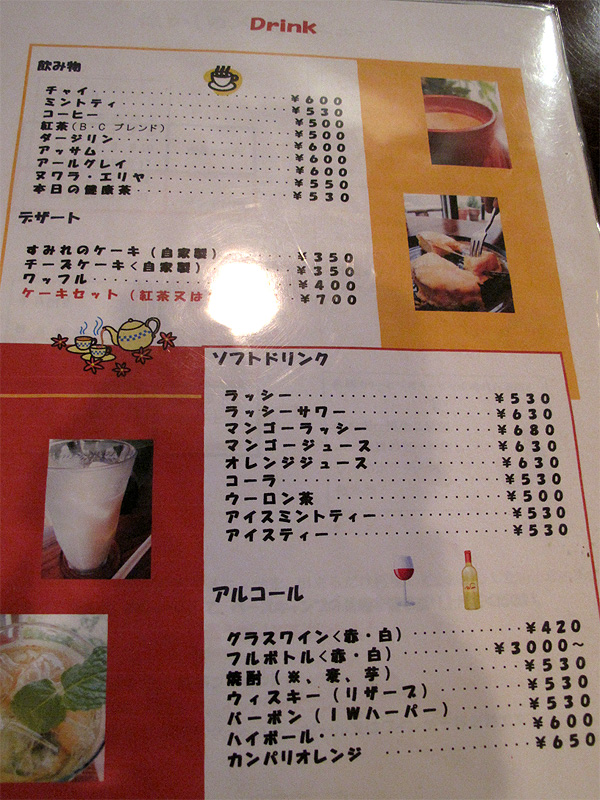 Drink
飲み物
チャイ ¥600
ミントティ ¥530
コーヒー ¥500
紅茶(B・C ブレンド) ¥500
ダージリン ¥600
アッサム ¥600
アールグレイ ¥600
ヌワラ・エリヤ ¥550
本日の健康茶 ¥530
デザート
すみれのケーキ(自家製) ¥350
チーズケーキ<自家製) ¥350
ワッフル ¥400
ケーキセット(紅茶又は ¥700
ソフトドリンク
ラッシー ¥530
ラッシーサワー ¥630
マンゴーラッシー ¥680
マンゴージュース ¥630
オレンジジュース ¥630
コーラ ¥530
ウーロン茶 ¥500
アイスミントティー ¥530
アイスティー ¥530
アルコール
グラスワイン<赤・白) ¥420
フルボトル<赤・白) ¥3000~
焼酎(※、麦、芋) ¥530
ウィスキー(リザーブ) ¥530
バーボン(IWハーパー) ¥530
ハイボール ¥600
カンパリオレンジ ¥650